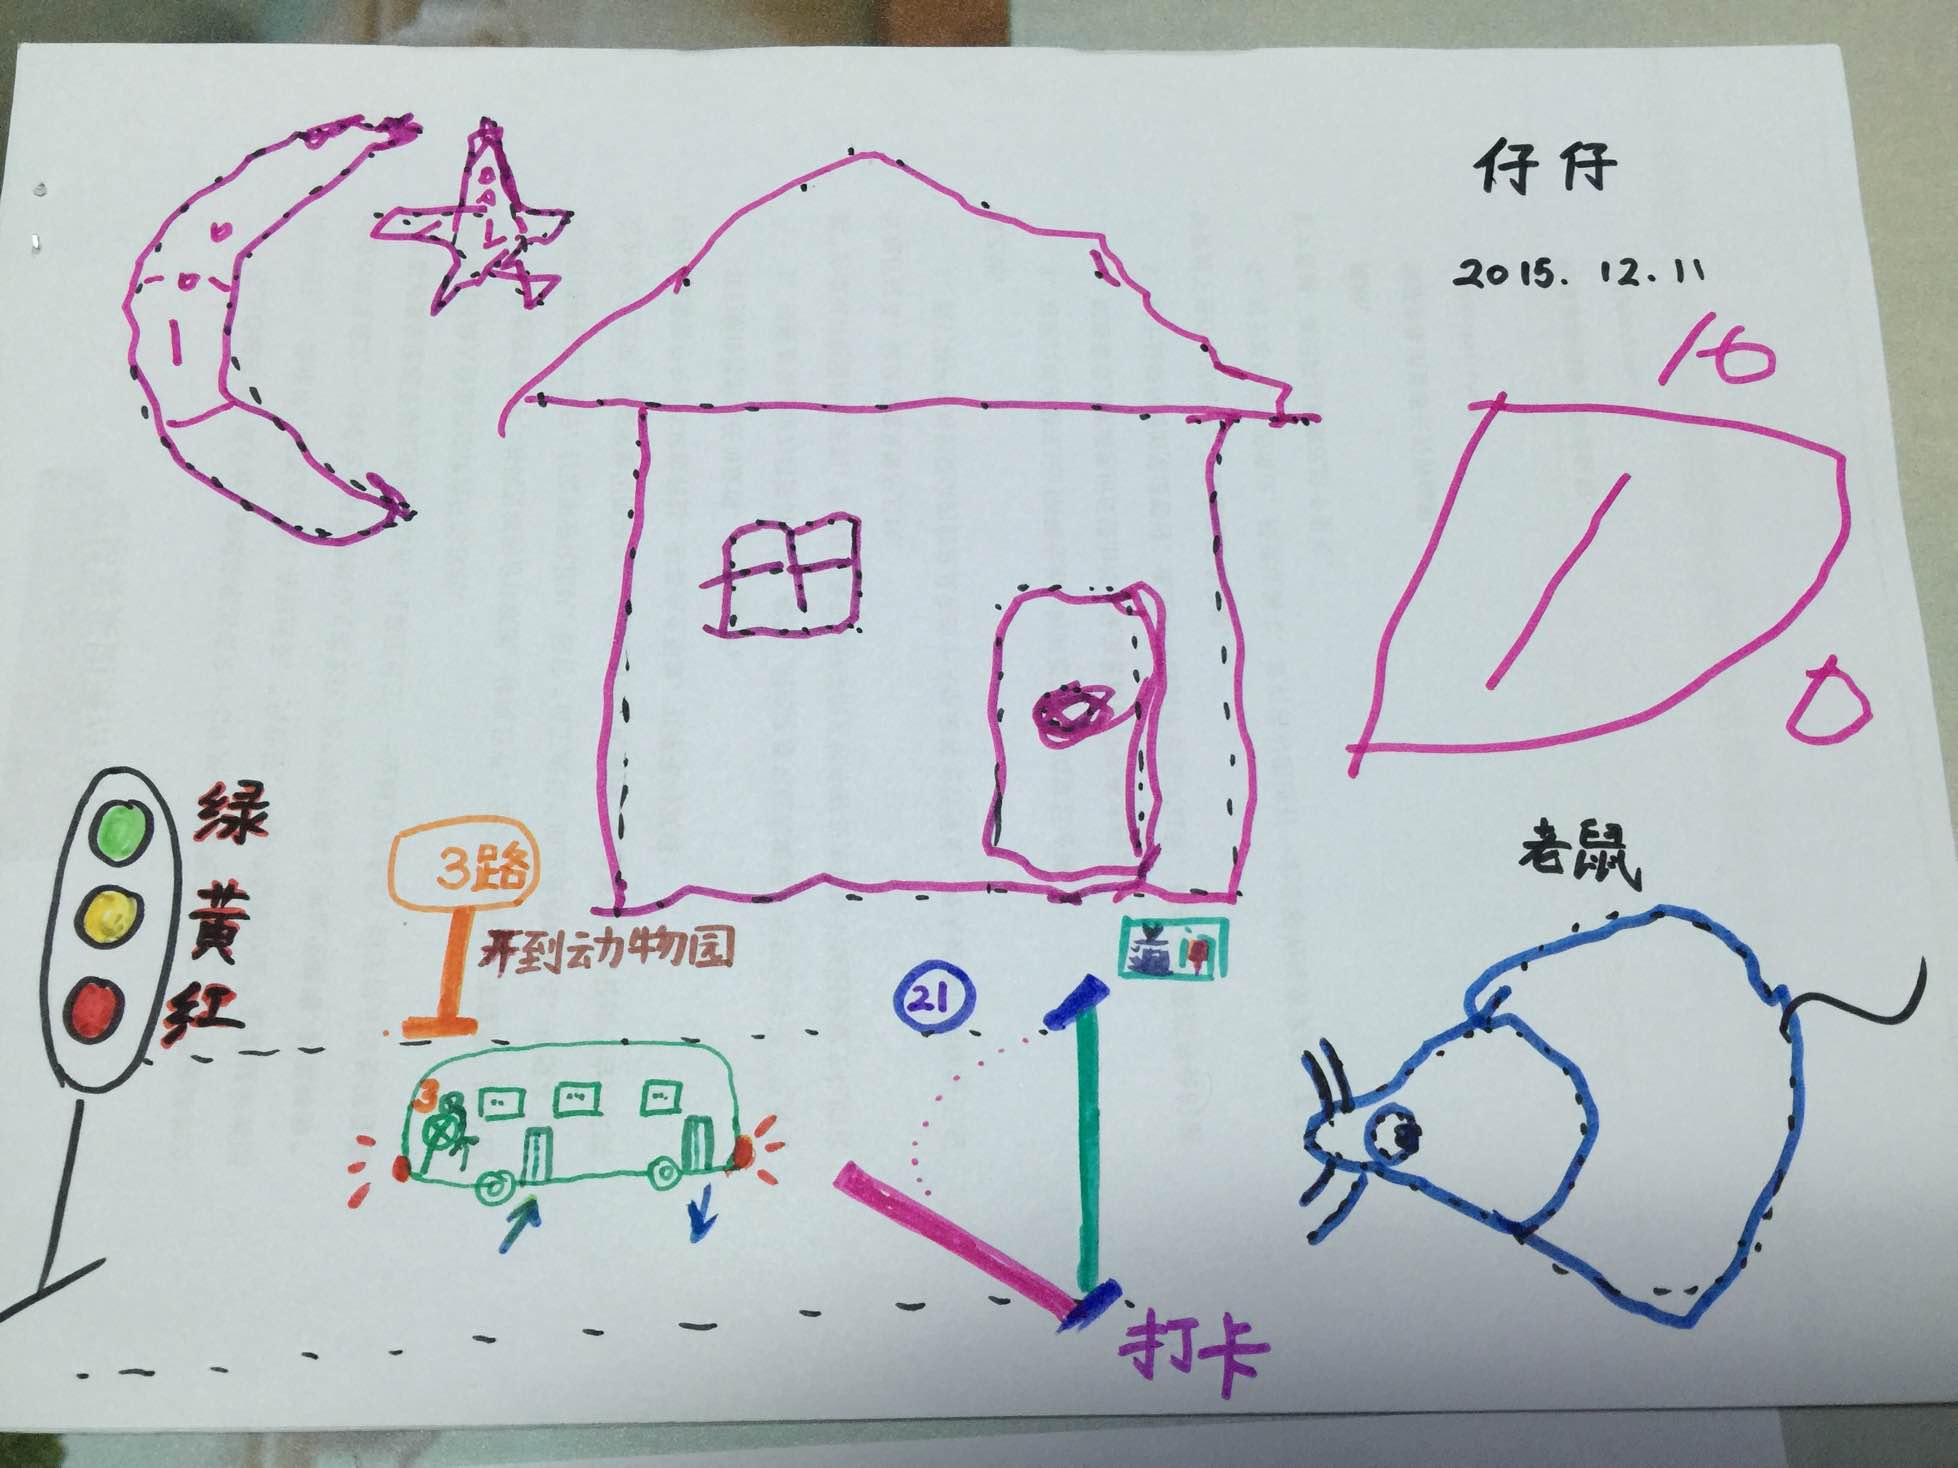 仔仔
2015.12.11
10
0
绿
黄
红
3路
开到动物园
老鼠
道闸
21
3
打卡